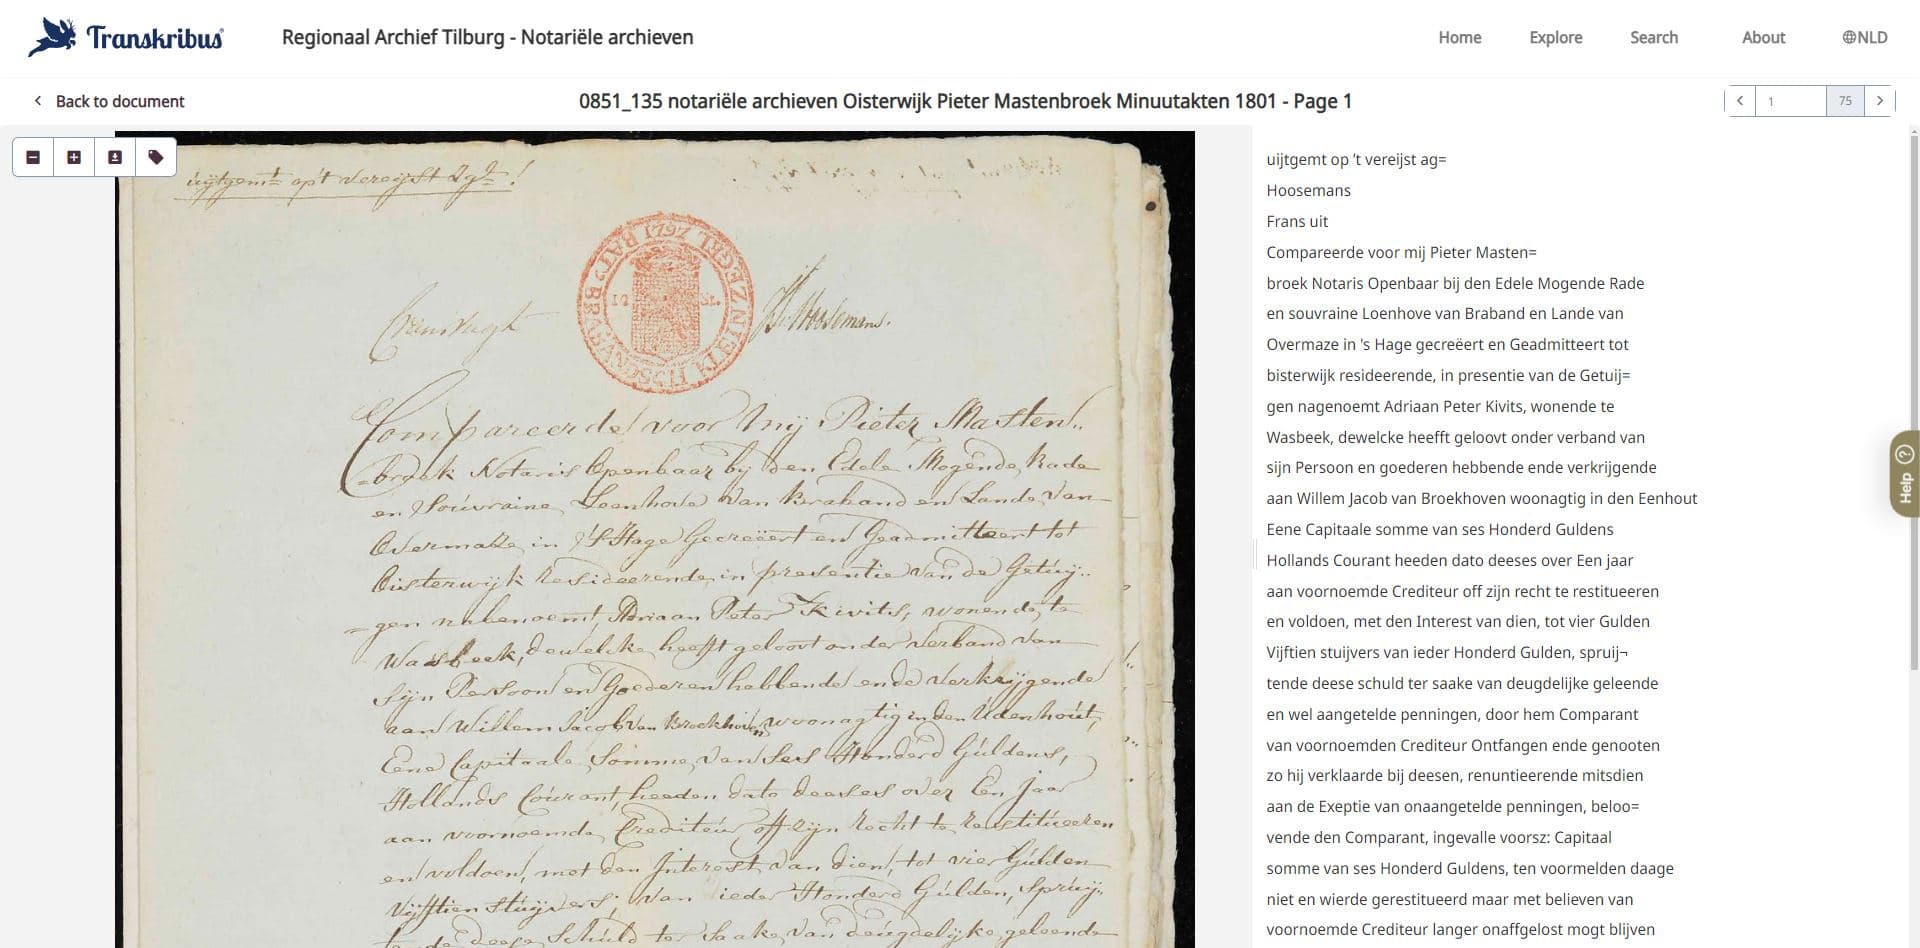 Transkribus
Regionaal Archief Tilburg - Notariële archieven
Home
Explore
Search
About
NLD
Back to document
0851_135 notariële archieven Oisterwijk Pieter Mastenbroek Minuutakten 1801 - Page 1
1
75
uijtgemt op't vereijst Zgl!
ZEGEL 1797 BAT: BRABANDSCH KLEIN
12 St.
Hoosemans.
Compareerde voor Mij Pieter Masten..
=broek Notaris Openbaar bij den Edele Mogende Rade
en Souvraine Leenhove van Braband en Lande van
Overmaze in 'S Hage Gecreëert en Geadmitteert tot
Oisterwijk Resideerende, in presentie van de Getuij..
=gen nabenoemt, Adriaan Peter Kivits, wonende, te
Waesbeek, dewelke heefft gelooft onder Verband van
sijn Persoon en Goederen hebbende ende Verkrijgende
aan Willem Jacob van Broekhoven woonagtig in den Udenhout,
Eene Capitaale Somme, van Ses Honderd Guldens,
Hollands Courant, heeden dato deeses over Een Jaar
aan voornoemde Crediteur off zijn Recht te Restitueeren
en voldoen, met den Interest van dien, tot vier Gulden
Vijfftien Stuijvers, van ieder Honderd Gulden, Spruij..
tende deese Schuld ter Saake van deugdelijke geleende
uijtgemt op 't vereijst ag=
Hoosemans
Frans uit
Compareerde voor mij Pieter Masten=
broek Notaris Openbaar bij den Edele Mogende Rade
en souvraine Loenhove van Braband en Lande van
Overmaze in 's Hage gecreëert en Geadmitteert tot
bisterwijk resideerende, in presentie van de Getuij=
gen nagenoemt Adriaan Peter Kivits, wonende te
Wasbeek, dewelcke heefft geloovt onder verband van
sijn Persoon en goederen hebbende ende verkrijgende
aan Willem Jacob van Broekhoven woonagtig in den Eenhout
Eene Capitaale somme van ses Honderd Guldens
Hollands Courant heeden dato deeses over Een jaar
aan voornoemde Crediteur off zijn recht te restitueeren
en voldoen, met den Interest van dien, tot vier Gulden
Vijftien stuijvers van ieder Honderd Gulden, spruij¬
tende deese schuld ter saake van deugdelijke geleende
en wel aangetelde penningen, door hem Comparant
van voornoemden Crediteur Ontfangen ende genooten
zo hij verklaarde bij deesen, renuntieerende mitsdien
aan de Exeptie van onaangetelde penningen, beloo=
vende den Comparant, ingevalle voorsz: Capitaal
somme van ses Honderd Guldens, ten voormelden daage
niet en wierde gerestitueerd maar met believen van
voornoemde Crediteur langer onaffgelost mogt blijven
Help